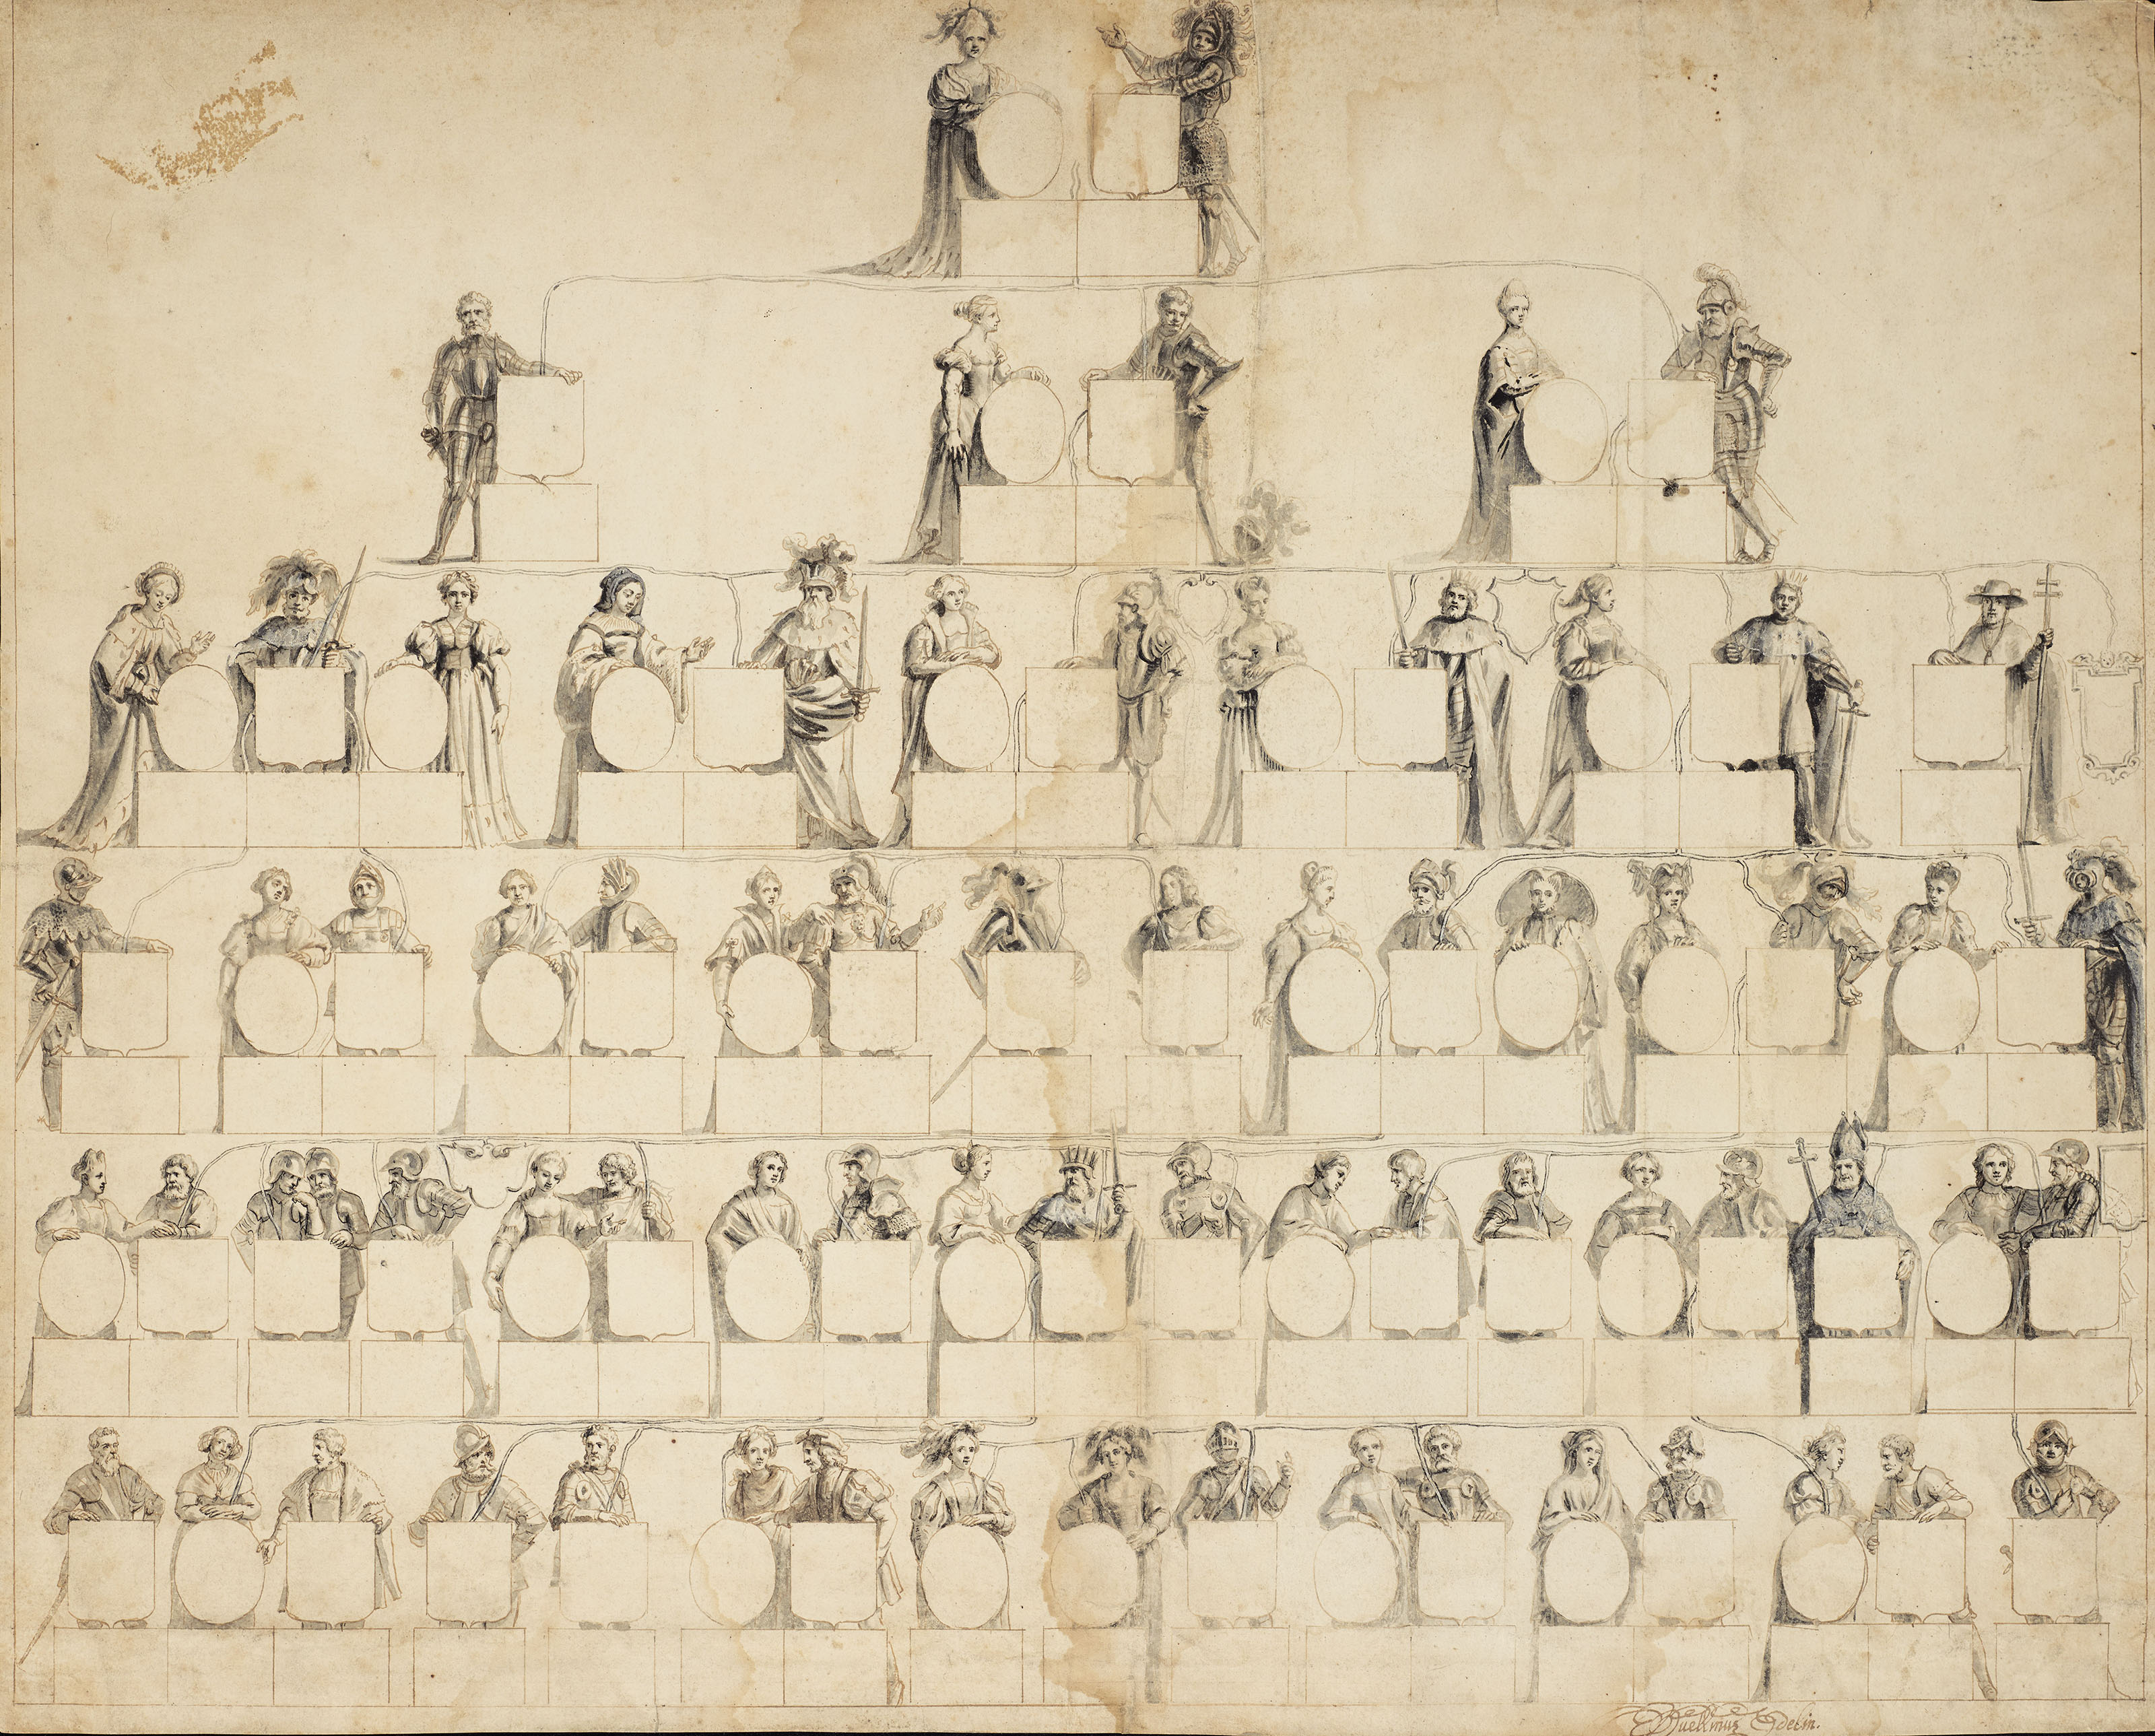 Quellinus delin.